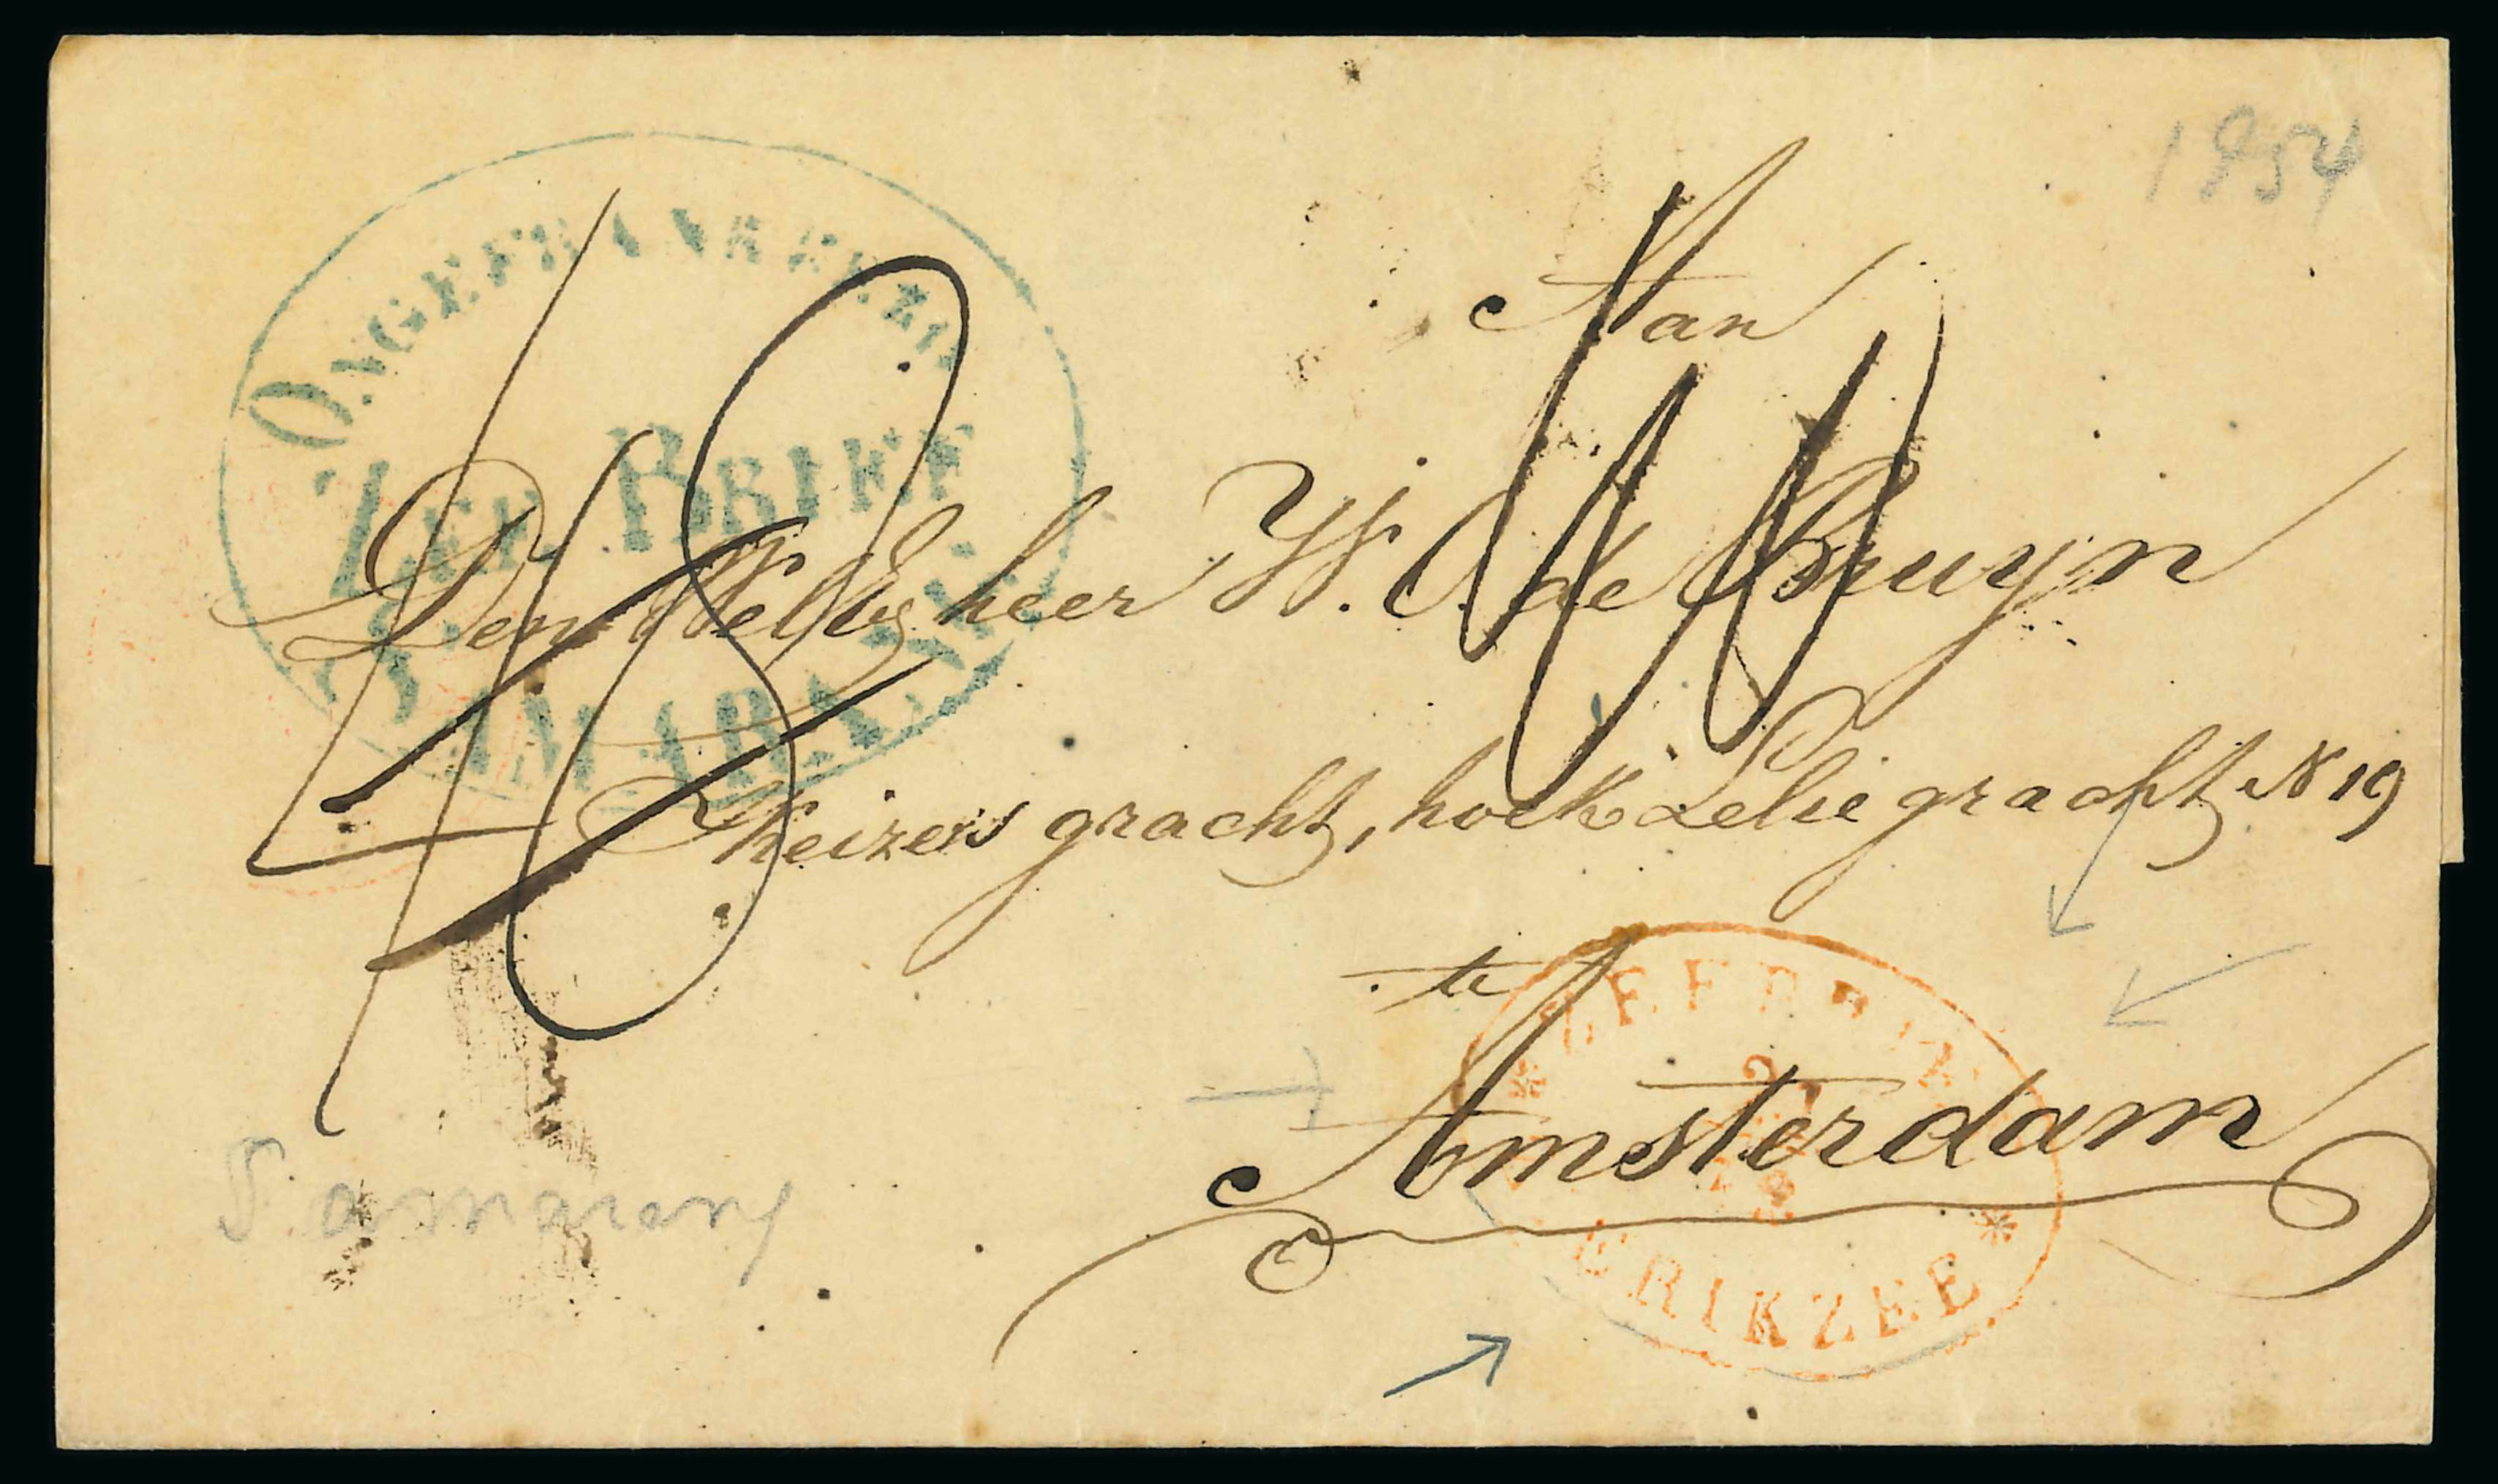 1854
ONGEFRANKEERD
ZEE BRIEF
SAMARANG
Aan
Den heer W. C. de Bruyn
Keizers gracht, hoek Lelie gracht N 19
te
Amsterdam
ZEEBRIEF
ZIERIKZEE
Samarang